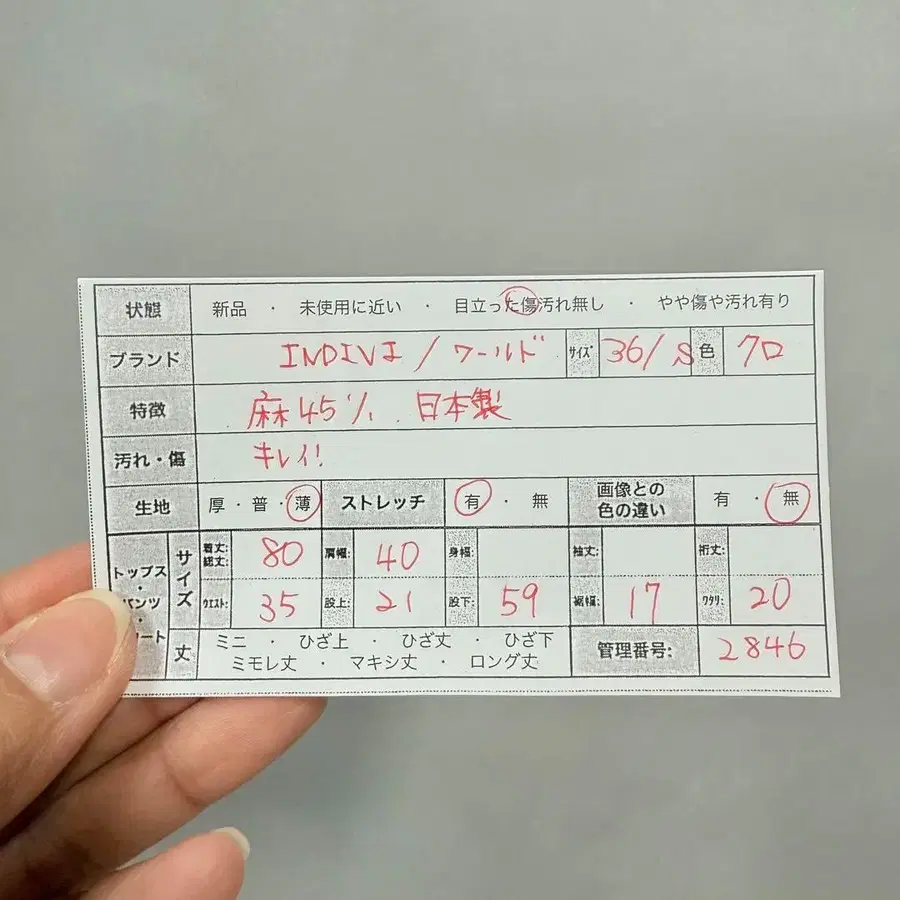 状態 新品 ・ 未使用に近い ・ 目立った傷汚れ無し ・ やや傷や汚れ有り
ブランド INDIVI / ワールド サイズ 36/S 色 クロ
特徴 麻45% 日本製
汚れ・傷 キレイ!
生地 厚・普・薄 ストレッチ 有・無 画像との色の違い 有・無
トップス・パンツ・ サイズ 着丈:総丈: 80 肩幅: 40 身幅: 袖丈: 裄丈:
ウエスト: 35 股上: 21 股下: 59 裾幅: 17 ワタリ: 20
丈 ミニ ・ ひざ上 ・ ひざ丈 ・ ひざ下
ミモレ丈 ・ マキシ丈 ・ ロング丈 管理番号: 2846